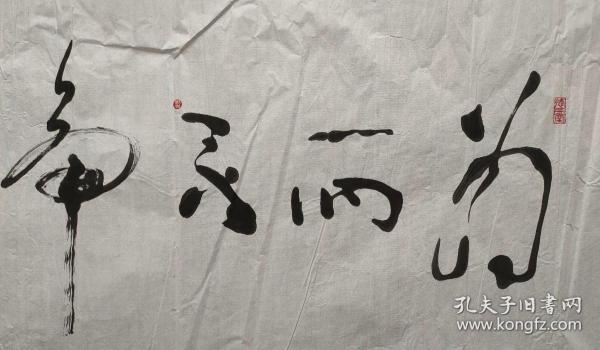 為而不爭
孔夫子旧書网
www.kongfz.com